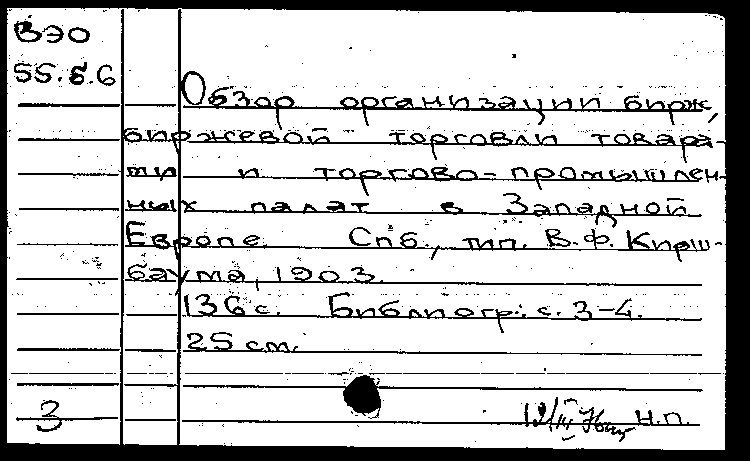 ВЭО
55.5.6
Обзор организации бирж,
биржевой торговли товара-
ми и торгово-промышлен-
ных палат в Западной
Европе. Спб., тип. В.Ф. Кирш-
баума, 1903.
136 с. Библиогр.: с. 3-4.
25 см.
3
Н.П.